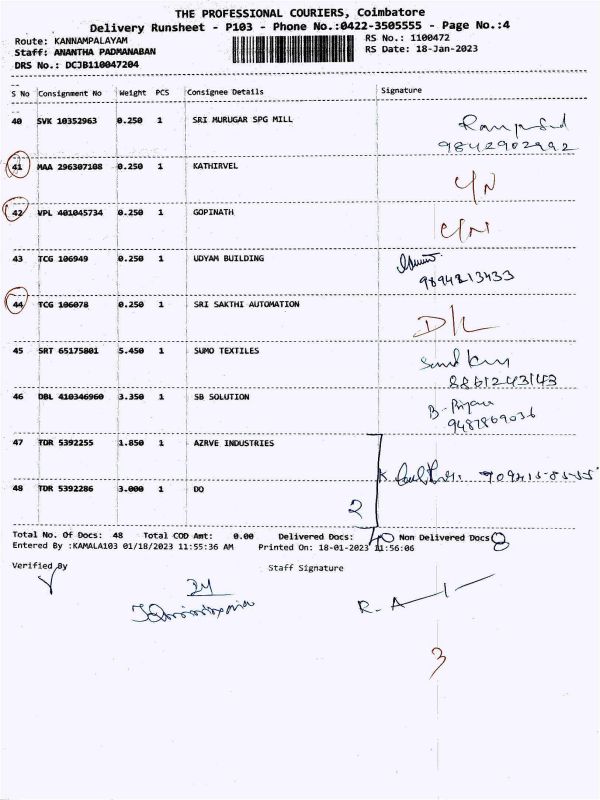 THE PROFESSIONAL COURIERS, Coimbatore
Delivery Runsheet - P103 - Phone No.:0422-3505555 - Page No.:4
Route: KANNAMPALAYAM RS No.: 1100472
Staff: ANANTHA PADMANABAN RS Date: 18-Jan-2023
DRS No.: DCJB110047204
S No Consignment No Weight PCS Consignee Details Signature
40 SVK 10352963 0.250 1 SRI MURUGAR SPG MILL
9842902992
41 MAA 296307108 0.250 1 KATHIRVEL C/N
42 VPL 401045734 0.250 1 GOPINATH C/N
43 TCG 106949 0.250 1 UDYAM BUILDING
9894213433
44 TCG 106078 0.250 1 SRI SAKTHI AUTOMATION D/L
45 SRT 65175801 5.450 1 SUMO TEXTILES
8861243143
46 DBL 410346960 3.350 1 SB SOLUTION
9487869036
47 TDR 5392255 1.850 1 AZRVE INDUSTRIES
48 TDR 5392286 3.000 1 DO 2
Total No. Of Docs: 48 Total COD Amt: 0.00 Delivered Docs: 40 Non Delivered Docs 8
Entered By :KAMALA103 01/18/2023 11:55:36 AM Printed On: 18-01-2023 11:56:06
Verified By Staff Signature
R. A
3